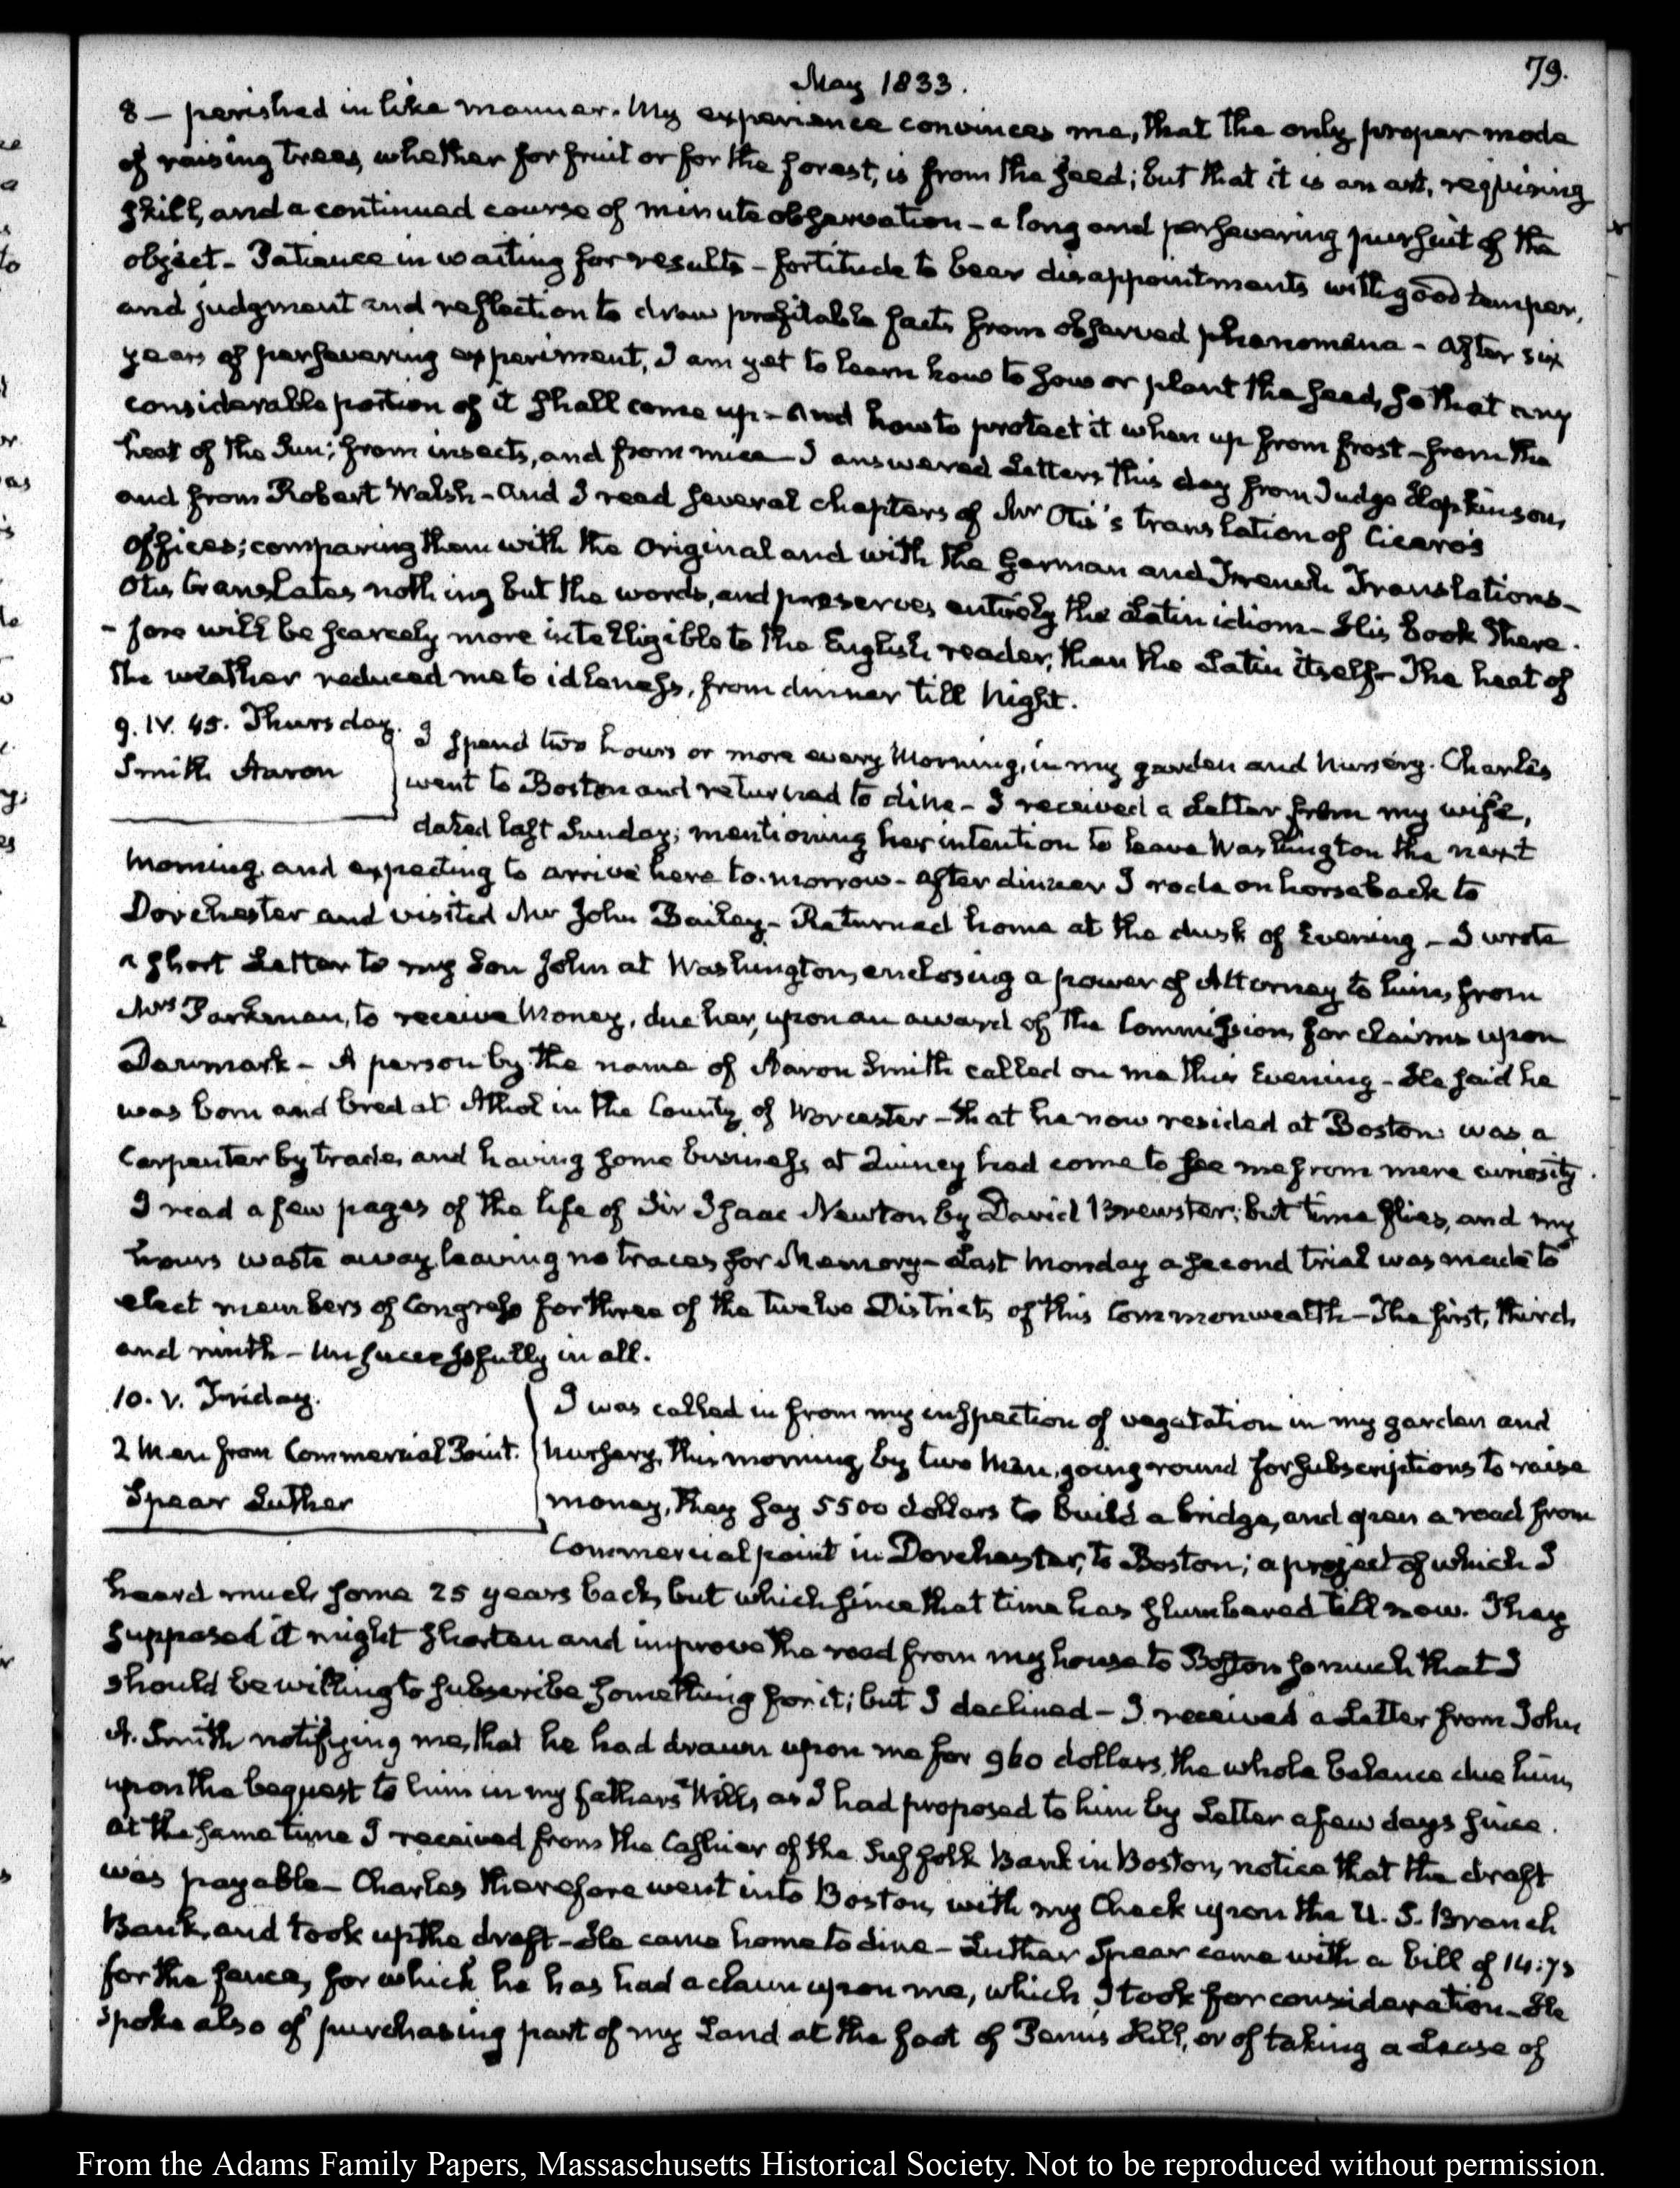 79.
May 1833.
8 — perished in like manner. My experience convinces me, that the only proper mode
of raising trees, whether for fruit or for the forest, is from the seed; but that it is an art, requiring
skill, and a continued course of minute observation - a long and persevering pursuit of the
object - Patience in waiting for results - fortitude to bear disappointments with good temper,
and judgment and reflection to draw profitable facts from observed phenomena - After six
years of persevering experiment, I am yet to learn how to sow or plant the seed, so that any
considerable portion of it shall come up - And how to protect it when up from frost - from the
heat of the Sun; from insects, and from mice - I answered Letters this day from Judge Hopkinson,
and from Robert Walsh - And I read several chapters of Mr Otis's translation of Cicero's
Offices; comparing them with the Original and with the German and French Translations -
Otis translates nothing but the words, and preserves entirely the Latin idiom - His book there-
-fore will be scarcely more intelligible to the English reader, than the Latin itself - The heat of
the weather reduced me to idleness, from dinner till Night.
9. IV. 45. Thursday.
Smith Aaron
I spend two hours or more every Morning, in my garden and Nursery. Charles
went to Boston and returned to dine - I received a Letter from my wife,
dated last Sunday; mentioning her intention to leave Washington the next
Morning, and expecting to arrive here to-morrow - After dinner I rode on horseback to
Dorchester and visited Mr John Bailey - Returned home at the dusk of Evening - I wrote
a short Letter to my Son John at Washington, enclosing a power of Attorney to him, from
Mrs Parkman, to receive Money, due her, upon an award of the Commission for claims upon
Denmark - A person by the name of Aaron Smith called on me this Evening - He said he
was born and bred at Athol in the County of Worcester - that he now resided at Boston was a
Carpenter by trade, and having some business at Quincy had come to see me from mere curiosity.
I read a few pages of the life of Sir Isaac Newton by David Brewster; but time flies, and my
hours waste away leaving no traces for Memory - Last Monday a second trial was made to
elect members of Congress for three of the twelve Districts of this Commonwealth - The first, third,
and ninth - Unsuccessfully in all.
10. V. Friday.
2 Men from Commercial Point.
Spear Luther
I was called in from my inspection of vegetation in my garden and
Nursery, this morning, by two Men, going round for subscriptions to raise
money, they say 5500 dollars to build a bridge, and open a road from
Commercial point in Dorchester, to Boston; a project of which I
heard much some 25 years back, but which since that time has slumbered till now. They
supposed it might shorten and improve the road from my house to Boston so much that I
should be willing to subscribe something for it; but I declined - I received a Letter from John
A. Smith notifying me, that he had drawn upon me for 960 dollars, the whole balance due him,
upon the bequest to him in my father's Will, as I had proposed to him by Letter a few days since.
At the same time I received from the Cashier of the Suffolk Bank in Boston, notice that the draft
was payable - Charles therefore went into Boston, with my Check upon the U. S. Branch
Bank, and took up the draft - He came home to dine - Luther Spear came with a bill of 14:75
for the fence, for which he has had a claim upon me, which I took for consideration - He
spoke also of purchasing part of my Land at the foot of Penn's Hill, or of taking a Lease of
From the Adams Family Papers, Massachusetts Historical Society. Not to be reproduced without permission.